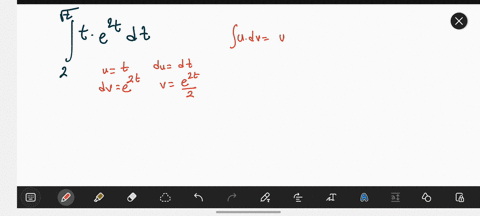 √2
∫ t · e^{2t} dt
2
∫u.dv= u
u= t du= dt
dv=e^{2t} v= e^{2t}/2